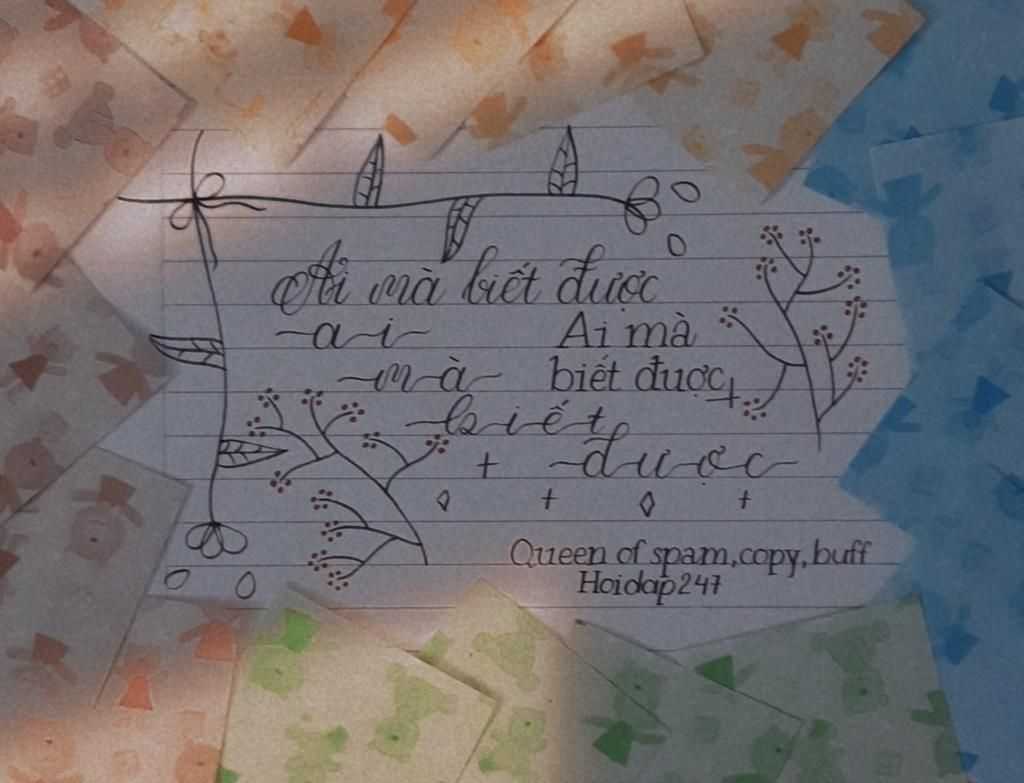 Ai mà biết được
a i
Ai mà
m à
biết được
b i ế t
đ ư ợ c
Queen of spam, copy, buff
Hoidap247